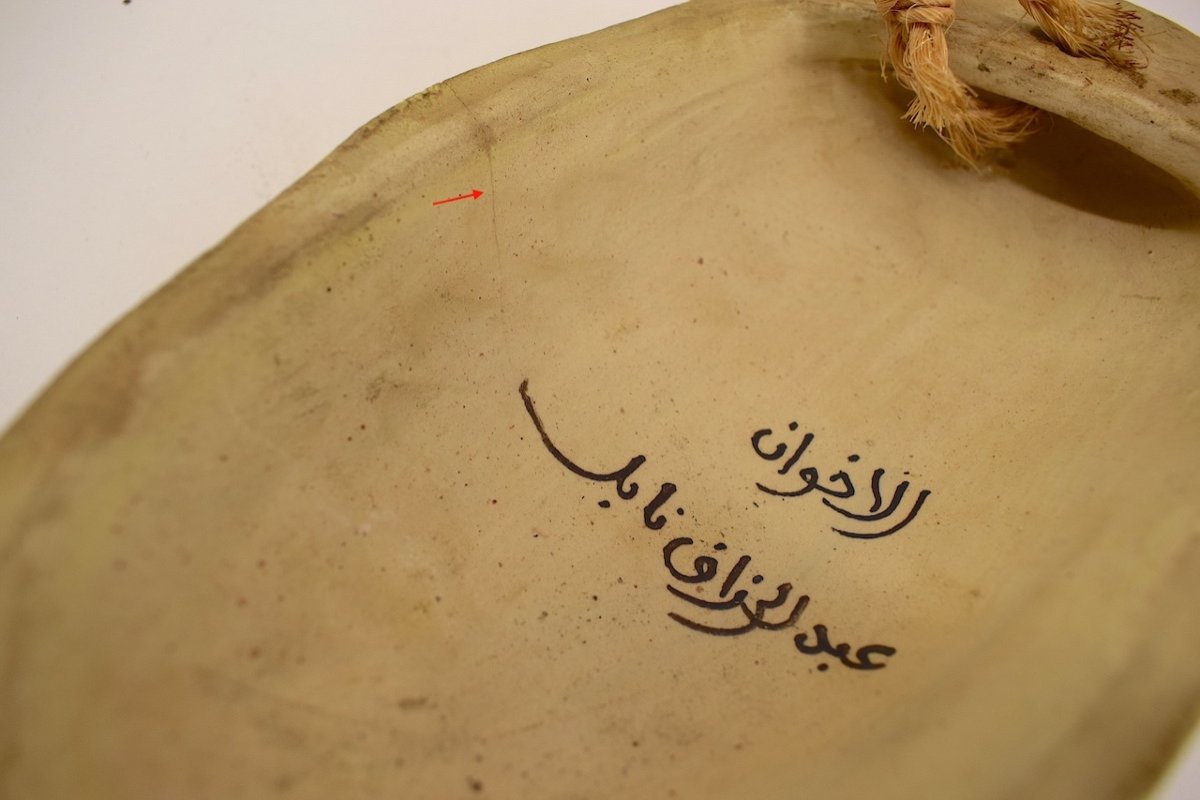 الاخوان
عبد الرزاق نابل